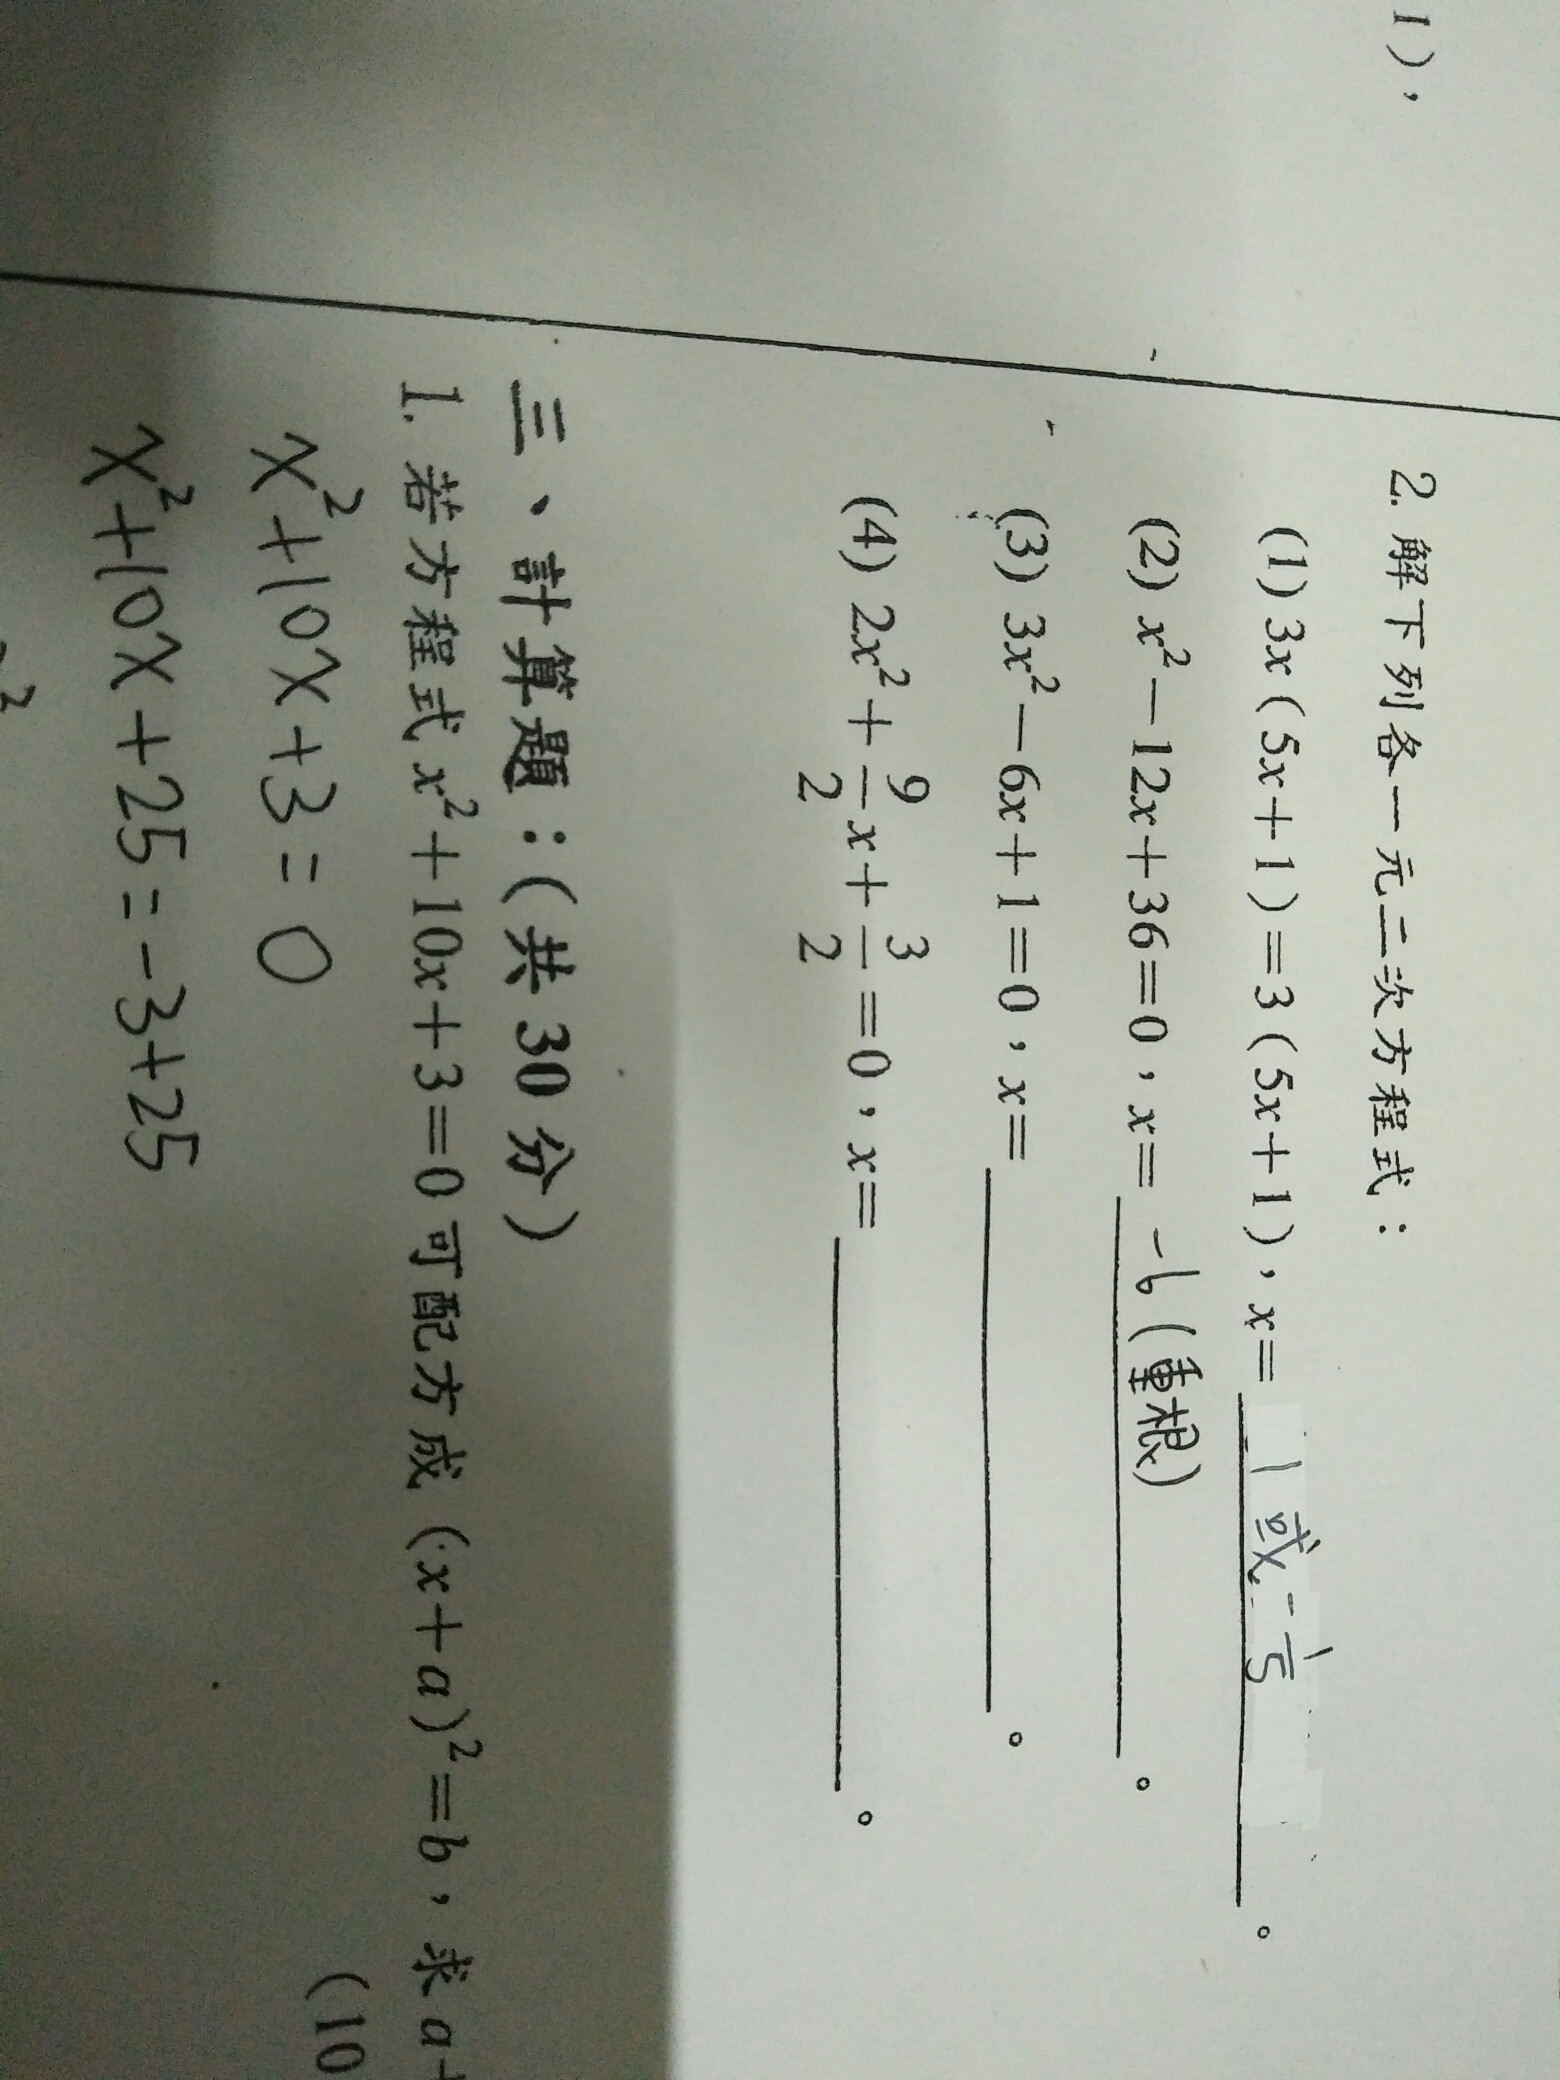 1），
2. 解下列各一元二次方程式：
(1) 3x(5x+1)=3(5x+1)，x= 1 或 -1/5 。
(2) x²-12x+36=0，x= -6(重根) 。
(3) 3x²-6x+1=0，x= 。
(4) 2x²+9/2x+3/2=0，x= 。
三、計算題：(共 30 分)
1. 若方程式 x²+10x+3=0 可配方成 (x+a)²=b，求 a+
(10
x²+10x+3=0
x²+10x+25=-3+25
2